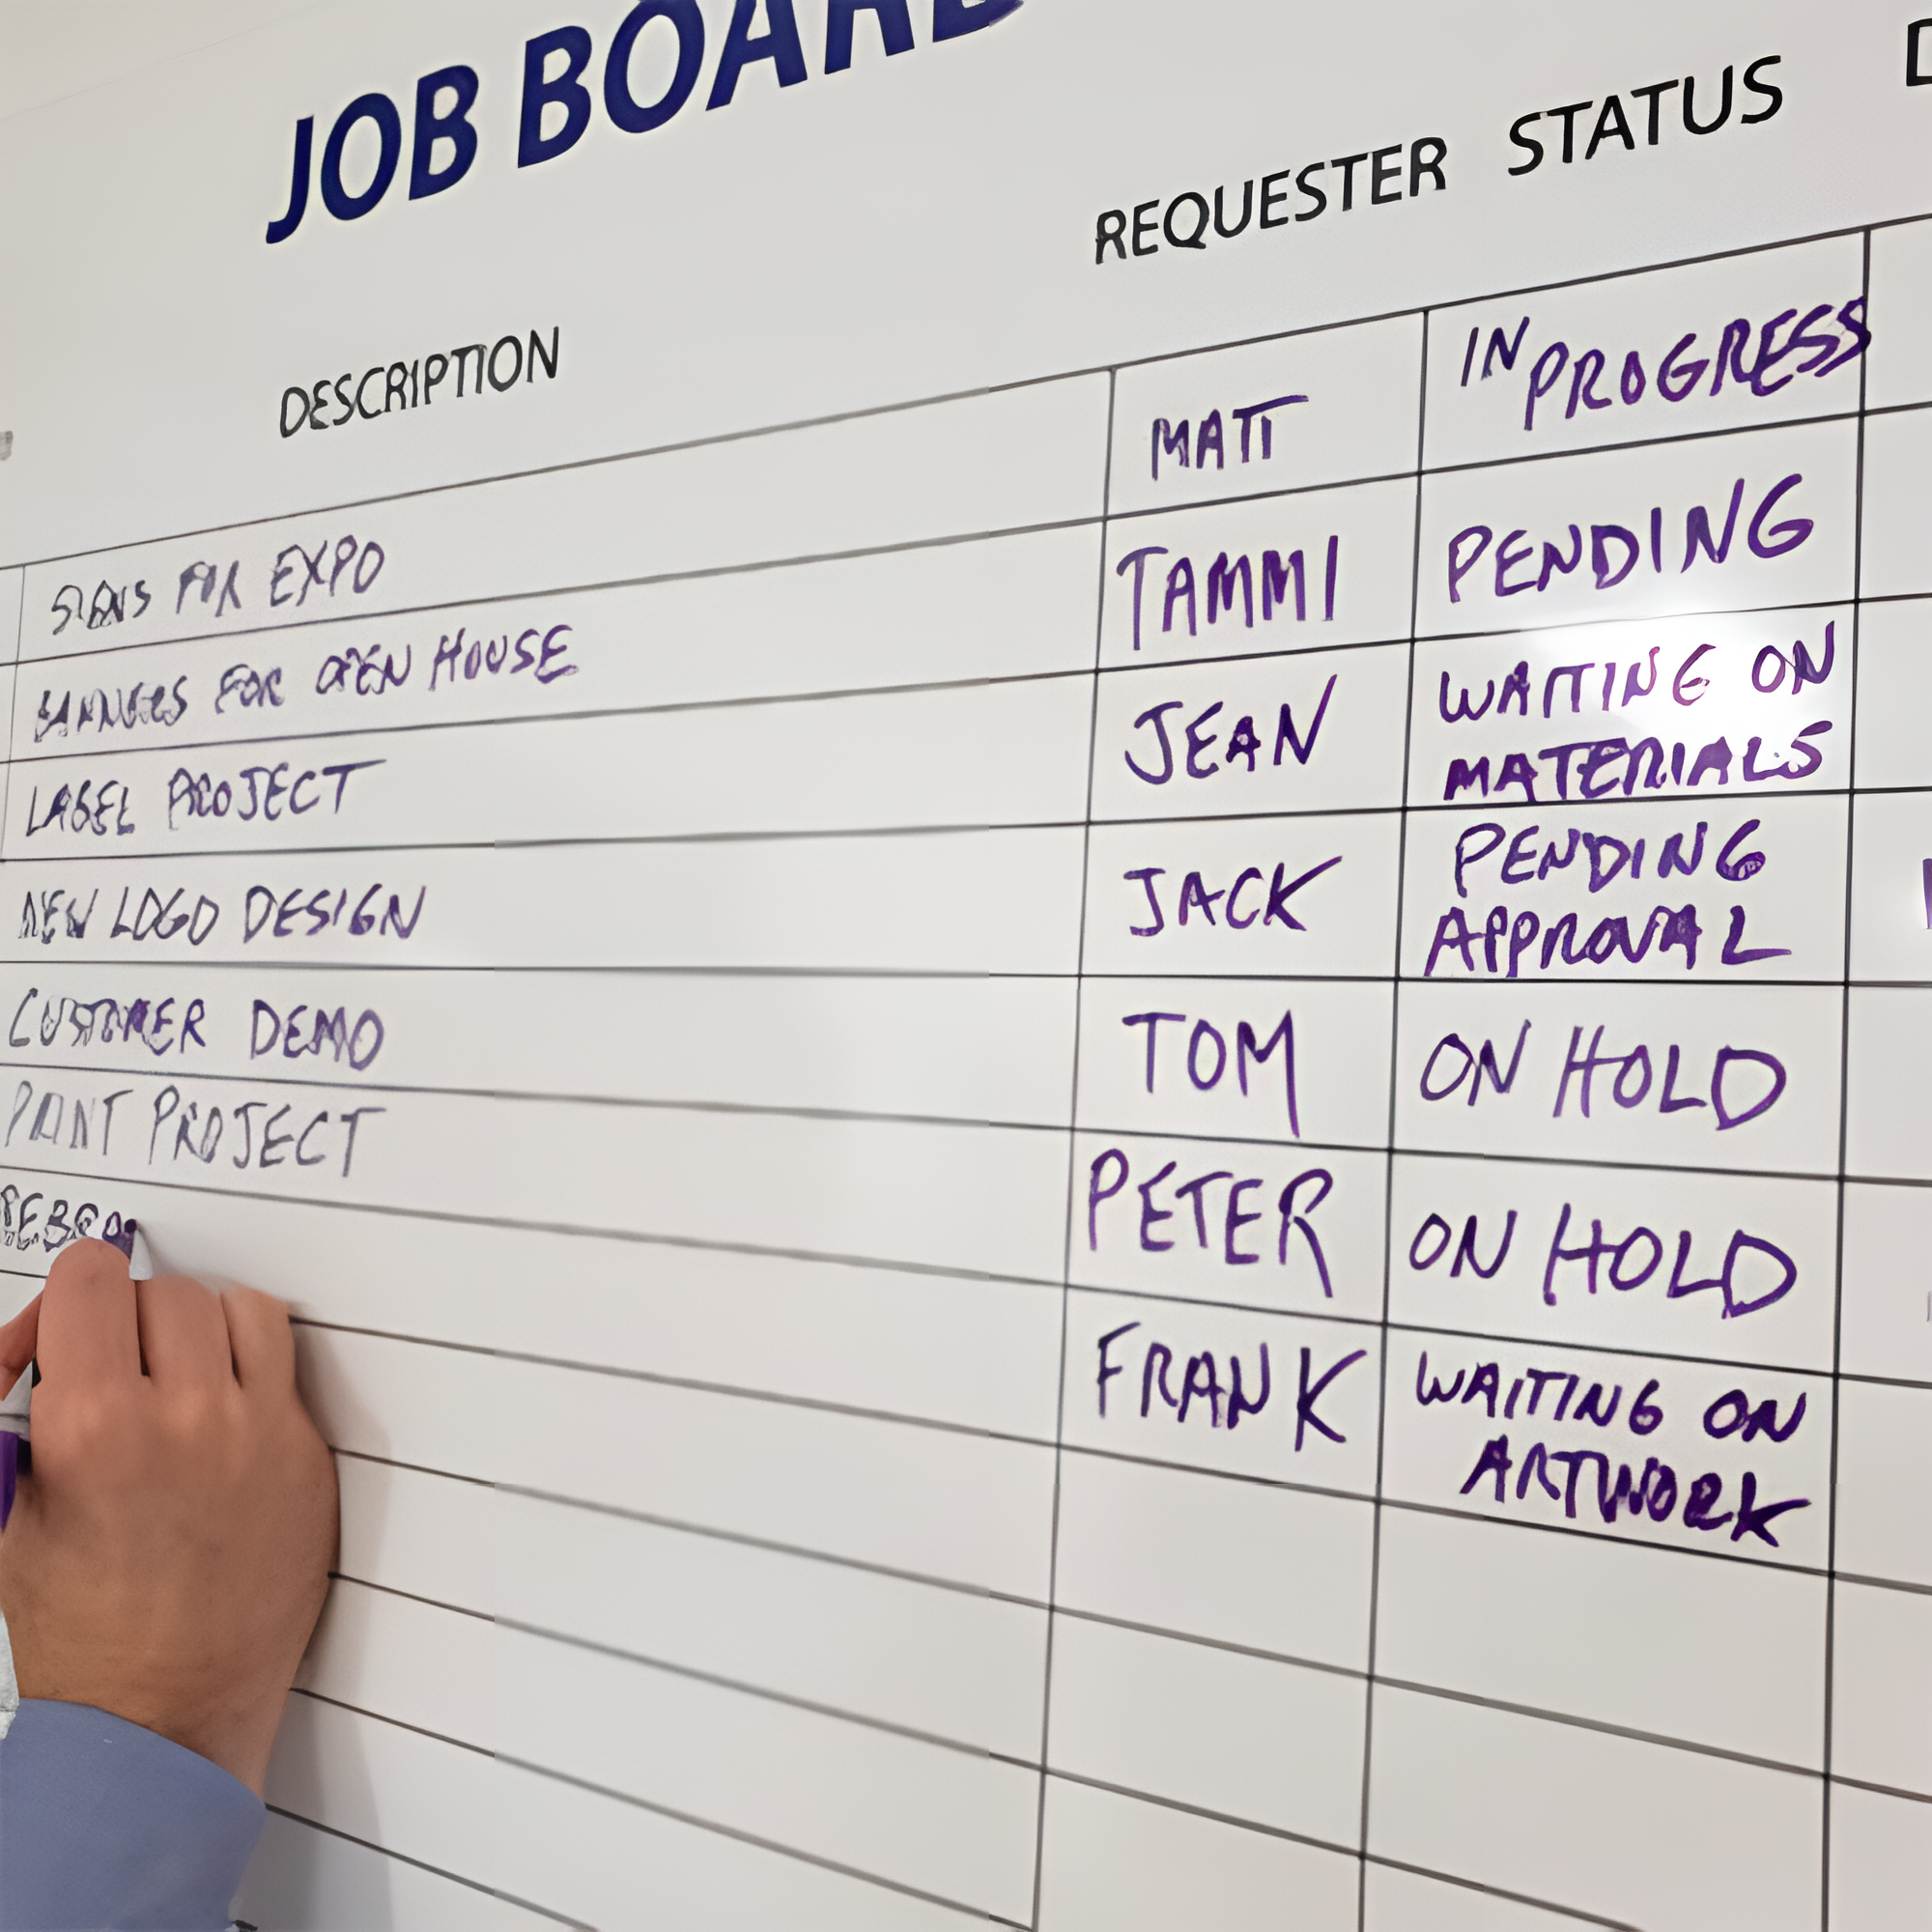 JOB BOARD
DESCRIPTION REQUESTER STATUS D
SIGNS FOR EXPO MATT IN PROGRESS
BANNERS FOR OPEN HOUSE TAMMI PENDING
LABEL PROJECT JEAN WAITING ON
MATERIALS
NEW LOGO DESIGN JACK PENDING
APPROVAL
CUSTOMER DEMO TOM ON HOLD
PRINT PROJECT PETER ON HOLD
FRANK WAITING ON
ARTWORK